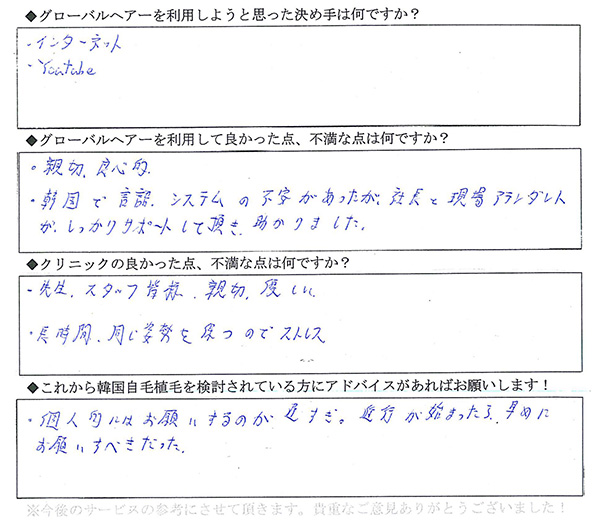 ◆グローバルヘアーを利用しようと思った決め手は何ですか?
・インターネット
・Youtube
◆グローバルヘアーを利用して良かった点、不満な点は何ですか?
・親切、良心的
・韓国で言語、システムの不安があったが、社長と現場アテンダント
が、しっかりサポートして頂き、助かりました。
◆クリニックの良かった点、不満な点は何ですか?
・先生、スタッフ皆様、親切、優しい
・長時間、同じ姿勢を保つのでストレス
◆これから韓国自毛植毛を検討されている方にアドバイスがあればお願いします!
・個人的にはお願いするのが遅すぎ。進行が始まったら、早めに
お願いすべきだった。
※今後のサービスの参考にさせて頂きます。貴重なご意見ありがとうございました!